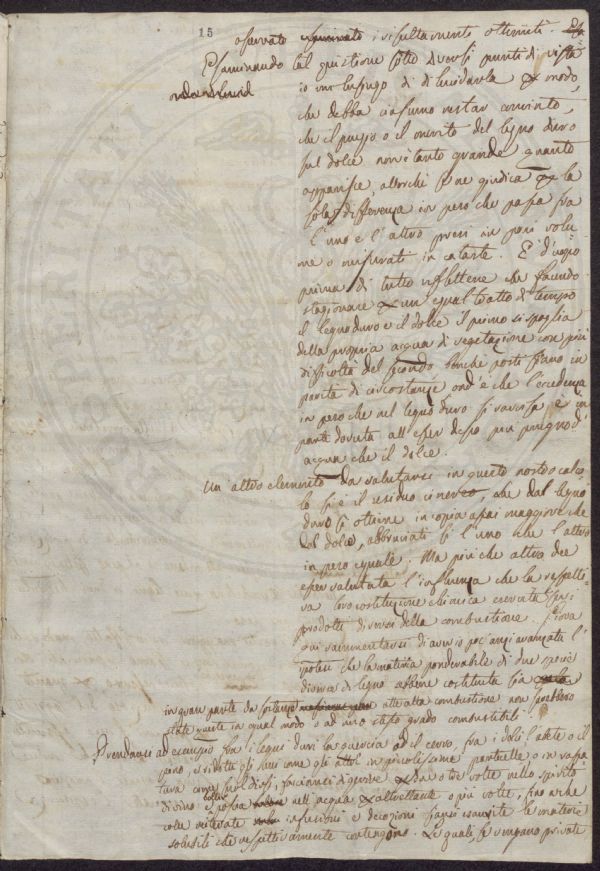 15
osservato i risultamenti ottenuti.
Esaminando tal quistione sotto diversi punti di vista
io mi lusingo di dilucidarla in modo,
che debba ciascuno restar convinto,
che il pregio o il merito del legno duro
sul dolce non è tanto grande quanto
apparisce, allorchè se ne giudica per la
sola differenza in peso che passa fra
l'uno e l'altro presi in pari volu
me o misurati in cataste. E' d'uopo
prima di tutto riflettere che facendo
stagionare per un egual tratto di tempo
il legno duro e il dolce il primo si spoglia
della propria acqua di vegetazione con più
difficoltà del secondo benchè posti siano in
parità di circostanze ond'è che l'eccedenza
in peso che nel legno duro si ravvisa è in
parte dovuta all'esser desso più pregno d'
acqua che il dolce.
Un altro elemento da valutarsi in questo nostro calco
lo si è il residuo cinereo, che dal legno
duro si ottiene in copia assai maggiore che
dal dolce, abbruciati sì l'uno che l'altro
in peso eguale. Ma più che altro dee
esser valutata l'influenza che la rispetti
va loro costituzione chimica esercita sui
prodotti diversi della combustione. Giova
qui rammentarsi di avere io poc'anzi avanzata l'
ipotesi che la materia ponderabile di due specie
diverse di legno sebbene costituita sia
in gran parte da sostanze atte alla combustione non sarebbero
state queste in egual modo o ad uno stesso grado combustibili.
Prendansi ad esempio fra i legni duri la quercia od il cerro, fra i dolci l'abete o il
pino, e ridotti gli uni come gli altri in piccolissime particelle o in raspa
tura come suol dirsi, facciansi digerire per due o tre volte nello spirito
di vino e poscia nell'acqua per altrettante o più volte, fino a che
colle reiterate infusioni e decozioni siansi esaurite le materie
solubili che rispettivamente contengono. Le quali, se vengano private